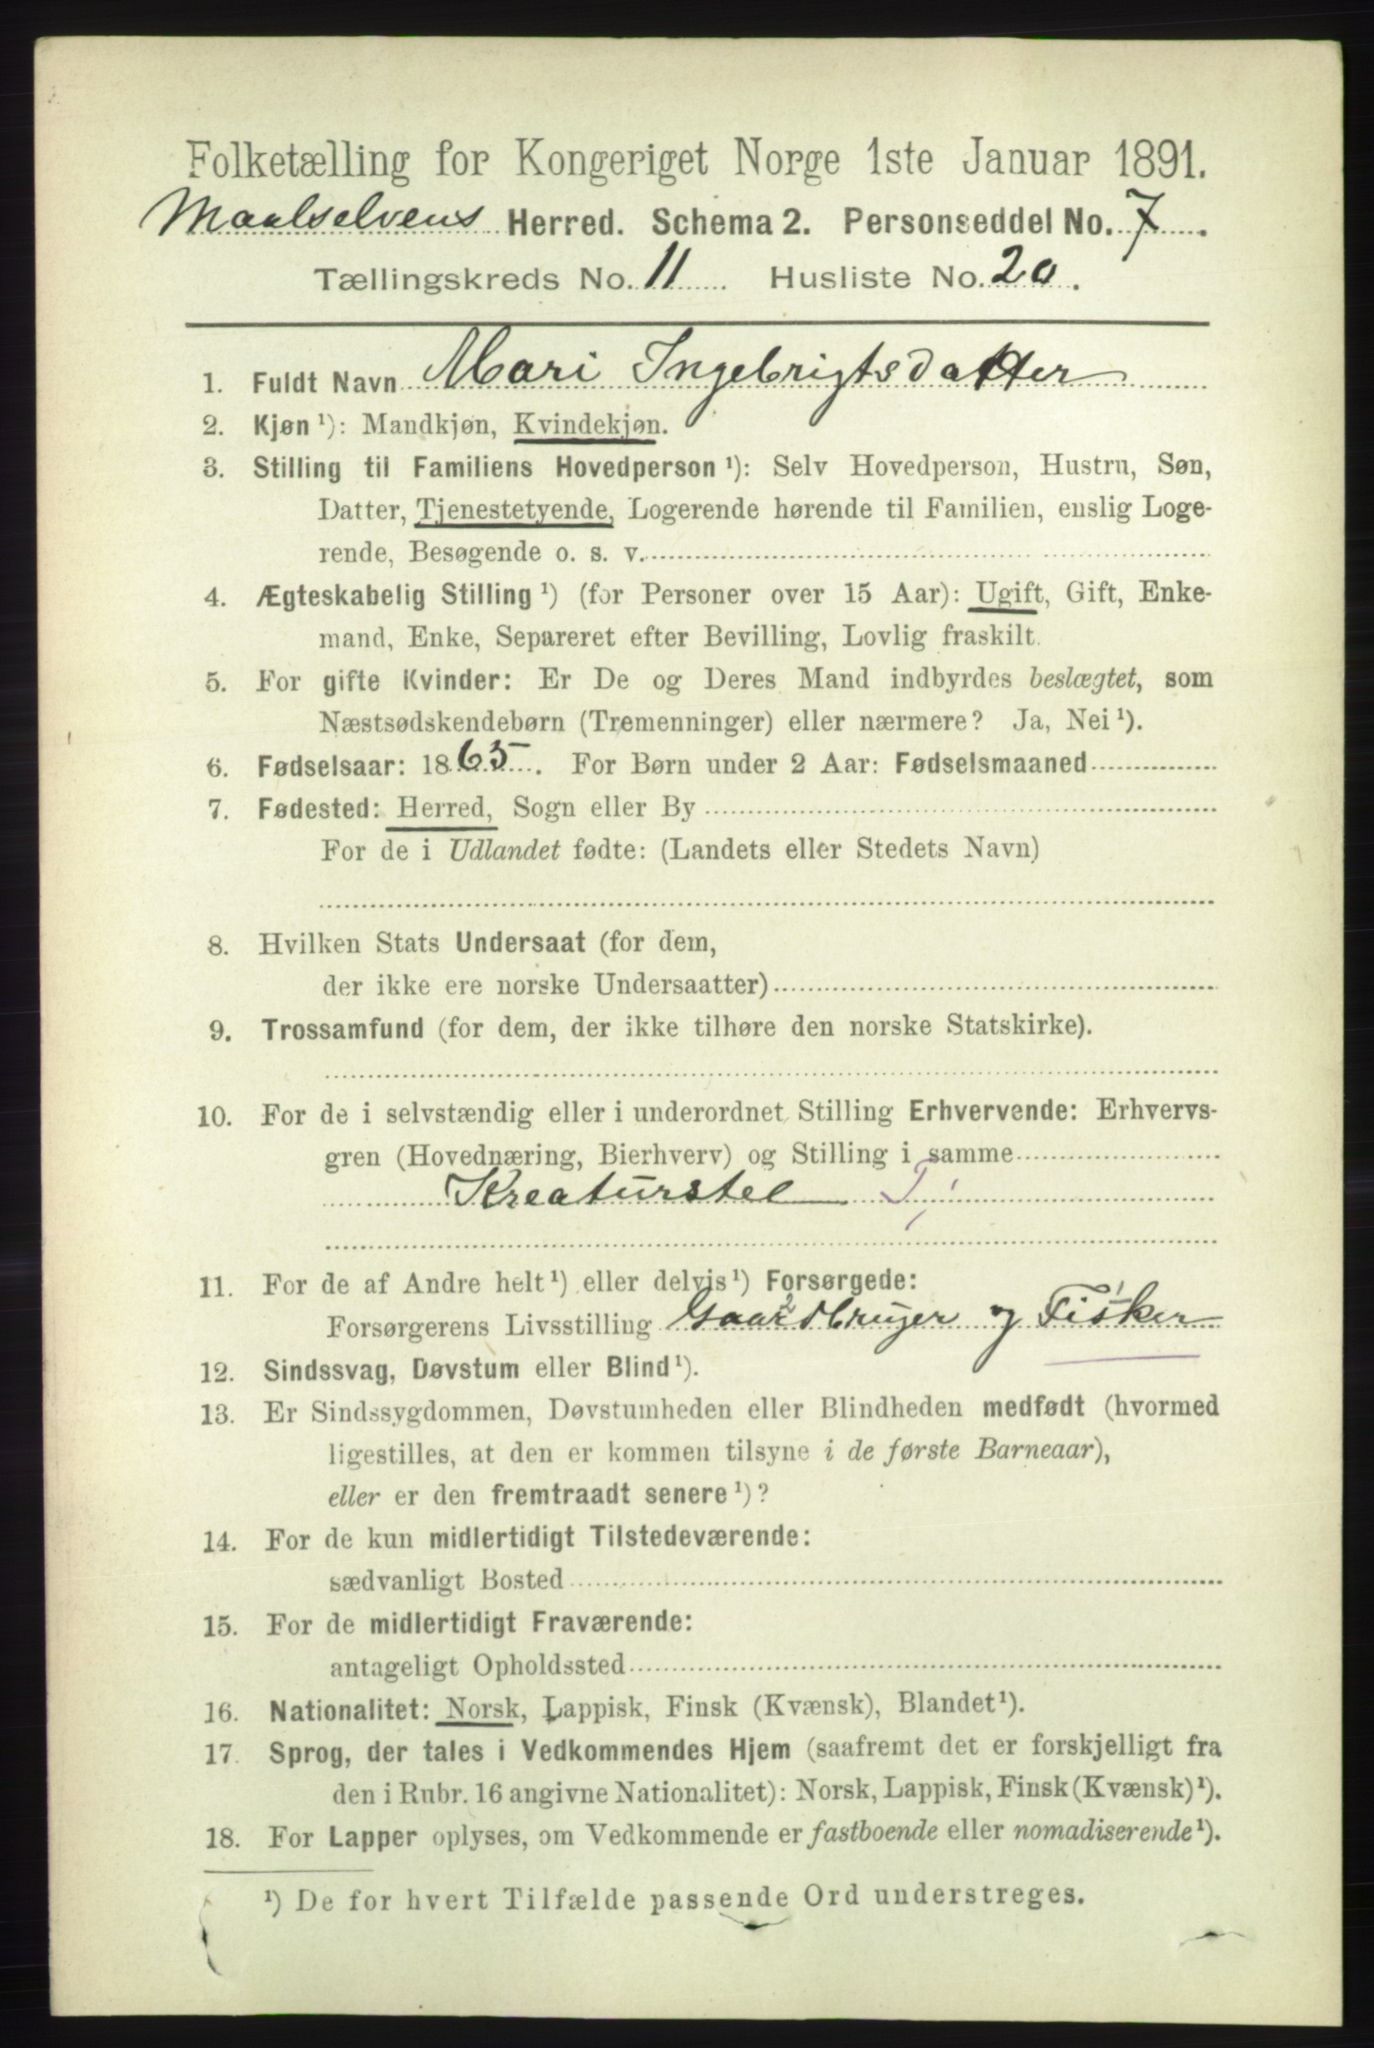 Folketælling for Kongeriget Norge 1ste Januar 1891.
Maalselvens Herred. Schema 2. Personseddel No. 7.
Tællingskreds No. 11 Husliste No. 20.
1. Fuldt Navn Mari Ingebrigtsdatter
2. Kjøn ¹): Mandkjøn, Kvindekjøn.
3. Stilling til Familiens Hovedperson ¹): Selv Hovedperson, Hustru, Søn,
Datter, Tjenestetyende, Logerende hørende til Familien, enslig Loge-
rende, Besøgende o. s. v.
4. Ægteskabelig Stilling ¹) (for Personer over 15 Aar): Ugift, Gift, Enke-
mand, Enke, Separeret efter Bevilling, Lovlig fraskilt.
5. For gifte Kvinder: Er De og Deres Mand indbyrdes beslægtet, som
Næstsødskendebørn (Tremenninger) eller nærmere? Ja, Nei ¹).
6. Fødselsaar: 1865. For Børn under 2 Aar: Fødselsmaaned
7. Fødested: Herred, Sogn eller By
For de i Udlandet fødte: (Landets eller Stedets Navn)
8. Hvilken Stats Undersaat (for dem,
der ikke ere norske Undersaatter)
9. Trossamfund (for dem, der ikke tilhøre den norske Statskirke).
10. For de i selvstændig eller i underordnet Stilling Erhvervende: Erhvervs-
gren (Hovednæring, Bierhverv) og Stilling i samme
Kreaturstel
11. For de af Andre helt ¹) eller delvis ¹) Forsørgede:
Forsørgerens Livsstilling Gaardbruger og Fisker
12. Sindssvag, Døvstum eller Blind ¹).
13. Er Sindssygdommen, Døvstumheden eller Blindheden medfødt (hvormed
ligestilles, at den er kommen tilsyne i de første Barneaar),
eller er den fremtraadt senere ¹)?
14. For de kun midlertidigt Tilstedeværende:
sædvanligt Bosted
15. For de midlertidigt Fraværende:
antageligt Opholdssted
16. Nationalitet: Norsk, Lappisk, Finsk (Kvænsk), Blandet ¹).
17. Sprog, der tales i Vedkommendes Hjem (saafremt det er forskjelligt fra
den i Rubr. 16 angivne Nationalitet): Norsk, Lappisk, Finsk (Kvænsk) ¹).
18. For Lapper oplyses, om Vedkommende er fastboende eller nomadiserende ¹).
¹) De for hvert Tilfælde passende Ord understreges.